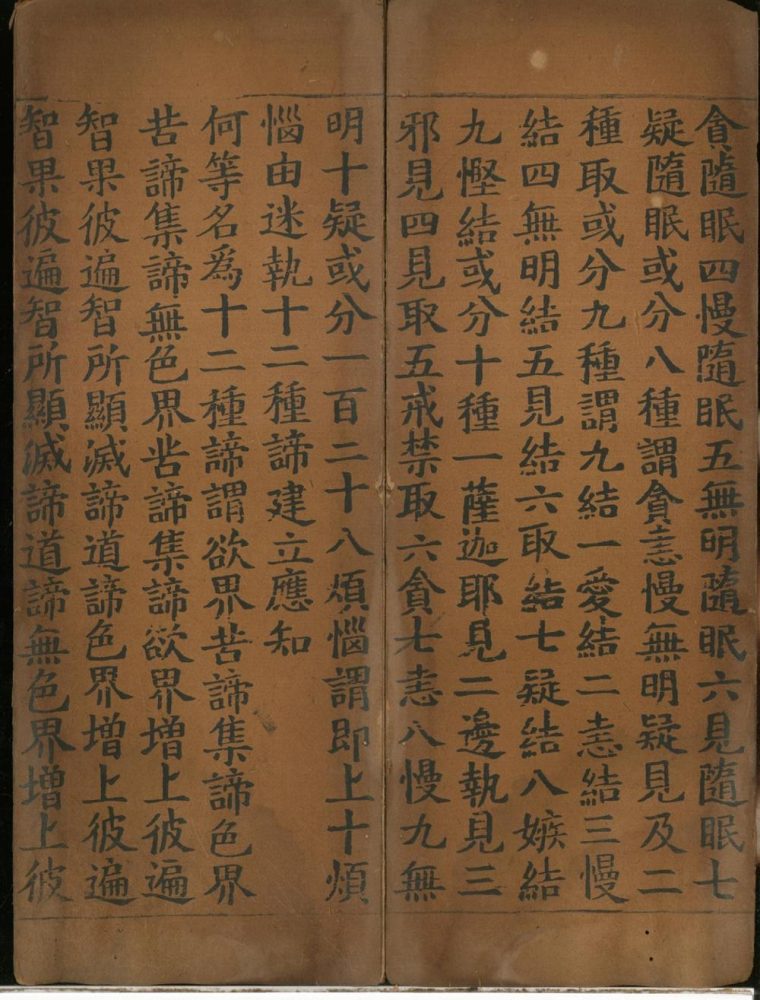 貪隨眠四慢隨眠五無明隨眠六見隨眠七
疑隨眠或分八種謂貪恚慢無明疑見及二
種取或分九種謂九結一愛結二恚結三慢
結四無明結五見結六取結七疑結八嫉結
九慳結或分十種一薩迦耶見二邊執見三
邪見四見取五戒禁取六貪七恚八慢九無
明十疑或分一百二十八煩惱謂即上十煩
惱由迷執十二種諦建立應知
何等名爲十二種諦謂欲界苦諦集諦色界
苦諦集諦無色界苦諦集諦欲界增上彼遍
智果彼遍智所顯滅諦道諦色界增上彼遍
智果彼遍智所顯滅諦道諦無色界增上彼